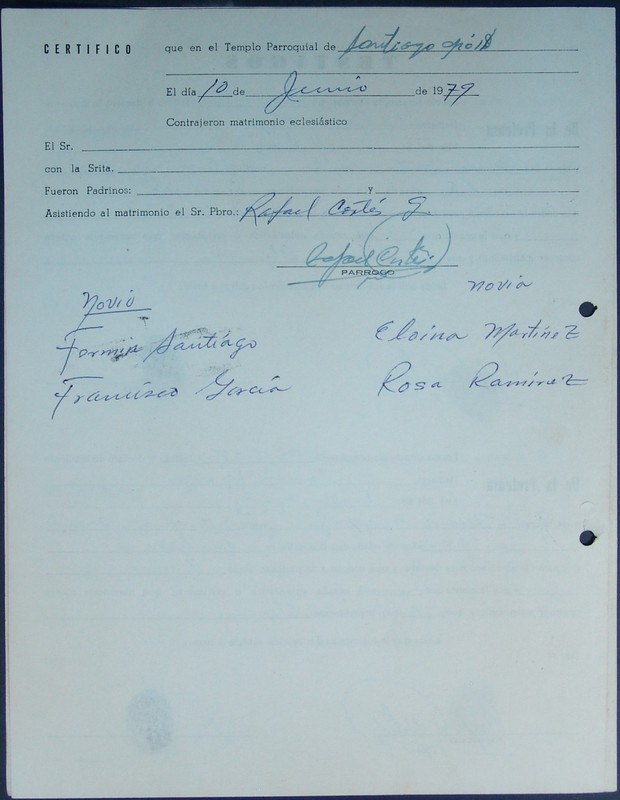 CERTIFICO que en el Templo Parroquial de Santiago Apóst
El día 10 de Junio de 1979
Contrajeron matrimonio eclesiástico
El Sr.
con la Srita.
Fueron Padrinos: y
Asistiendo al matrimonio el Sr. Pbro.: Rafael Cortés G.
Rafael Cortés
PARROCO
Novio novia
Fermin Santiágo Eloina MartineZ
Francisco García Rosa RamireZ